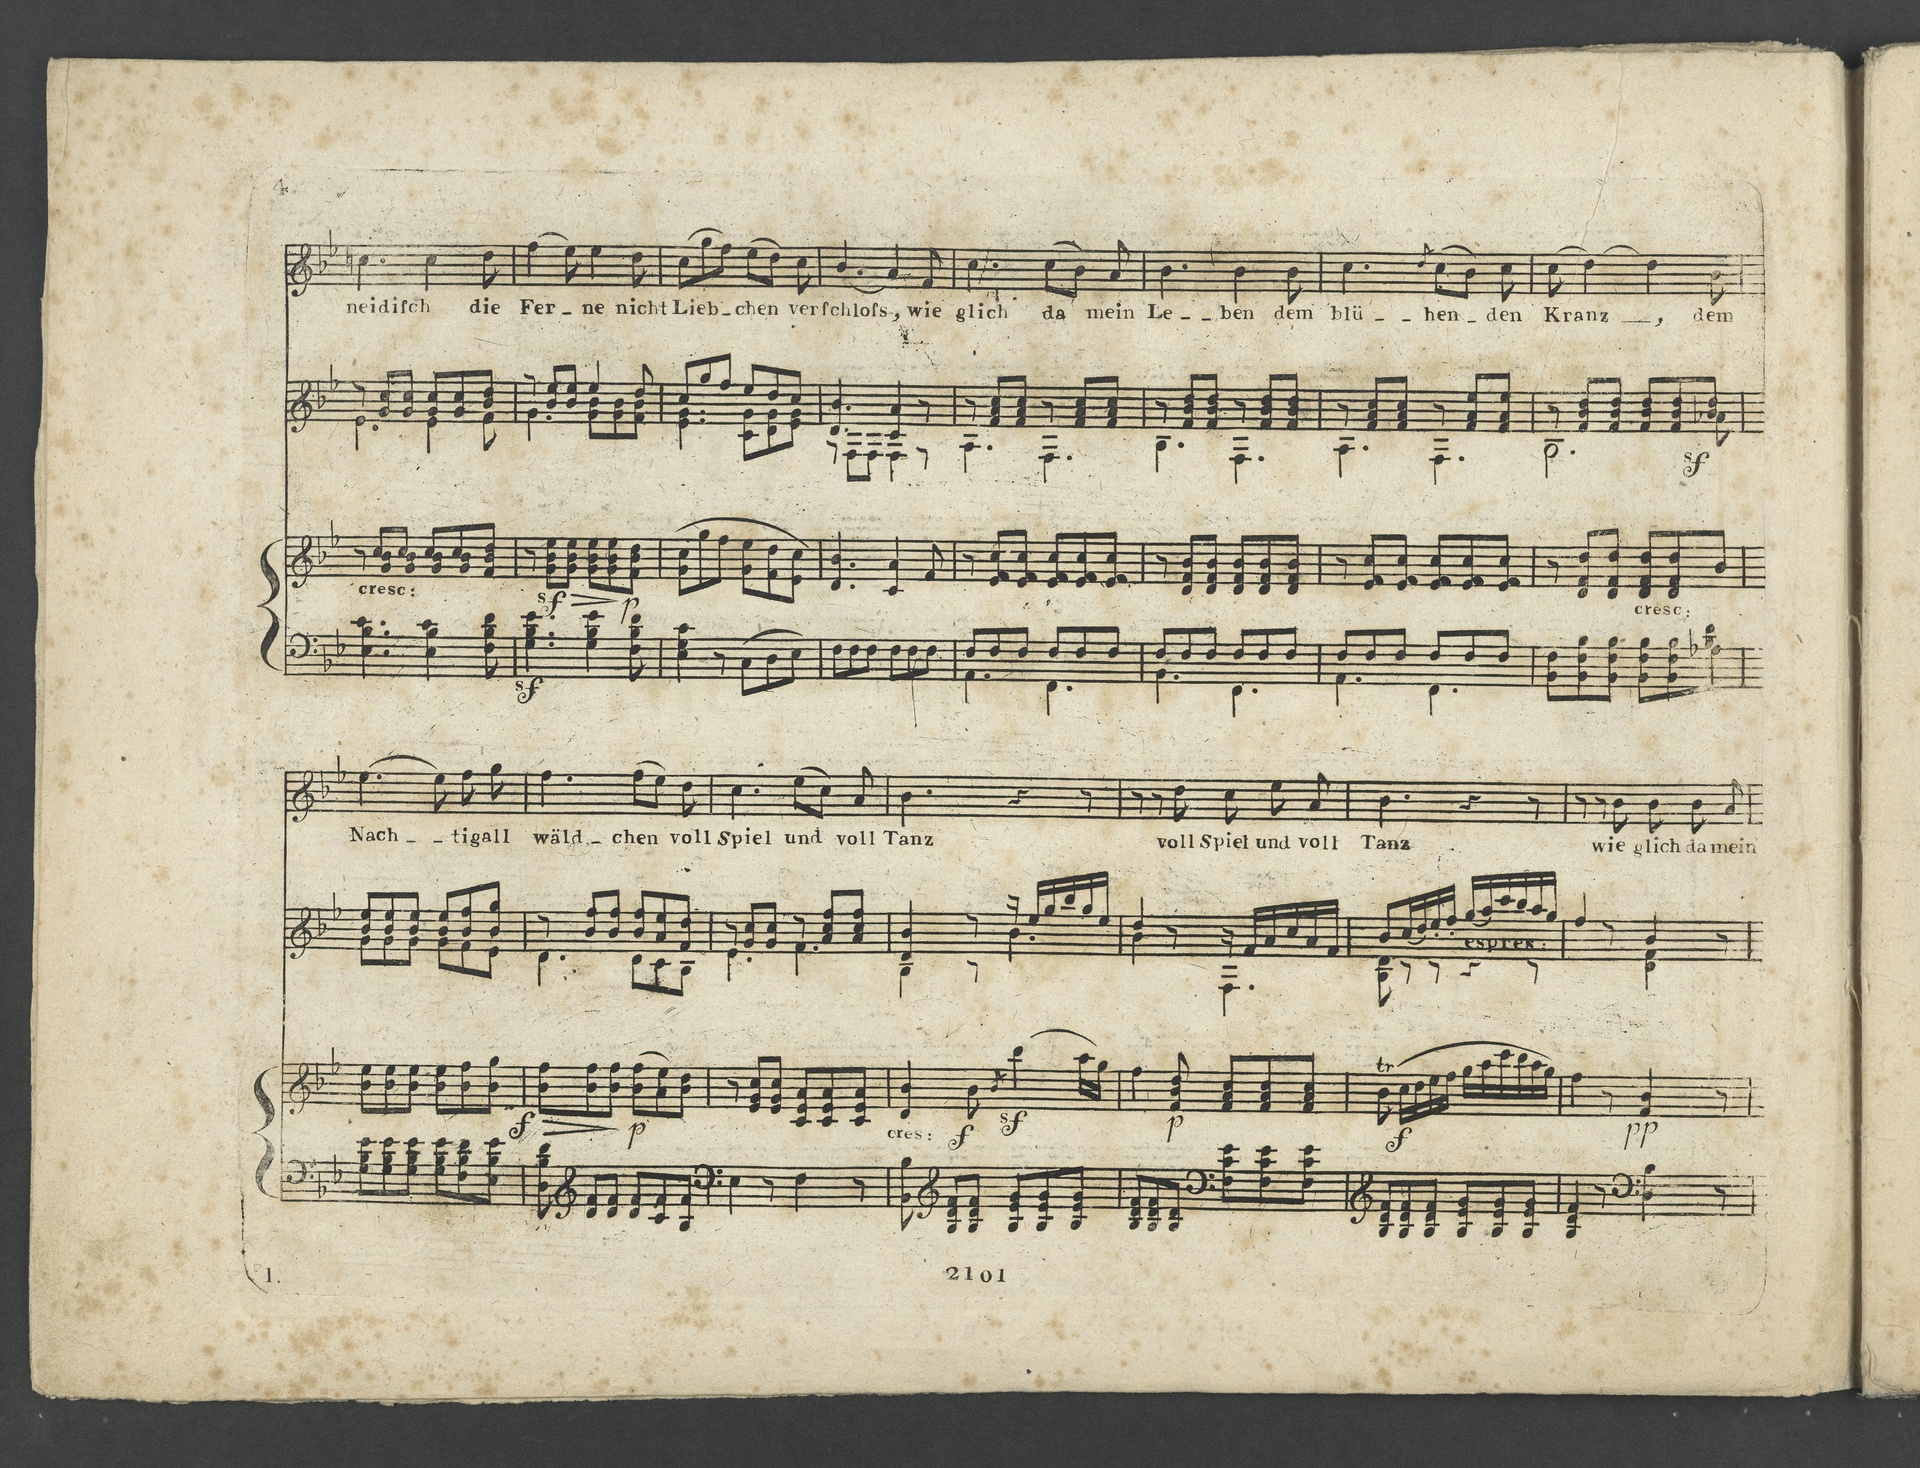 4
neidiſch die Fer_ne nicht Lieb_chen verſchloſs, wie glich da mein Le__ben dem blü__hen_den Kranz__, dem
sf
cresc: sf p
cresc:
sf
Nach__tigall wäld_chen voll Spiel und voll Tanz voll Spiel und voll Tanz wie glich da mein
espres:
tr
f p cres: f sf p f pp
1. 2101